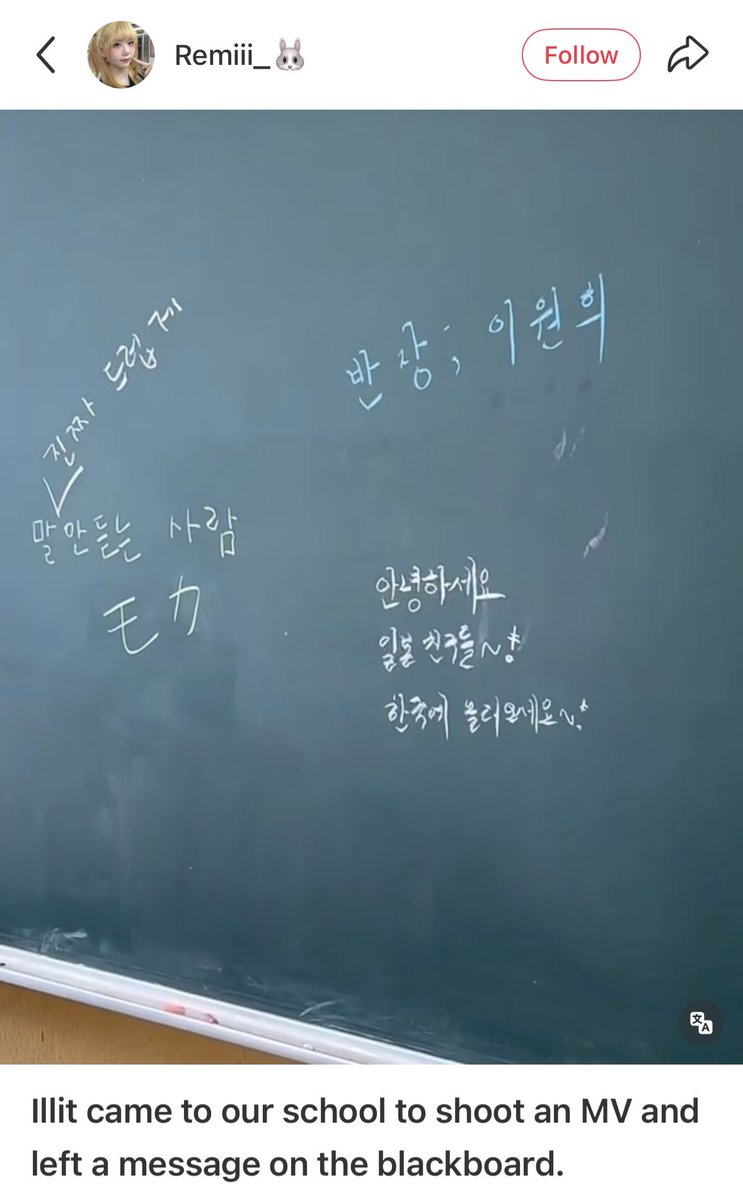 Remiii_🐰
Follow
진짜 드럽게
말 안듣는 사람
モカ
반장; 이원희
안녕하세요
일본 친구들~!
한국에 놀러오세요~!
Illit came to our school to shoot an MV and
left a message on the blackboard.